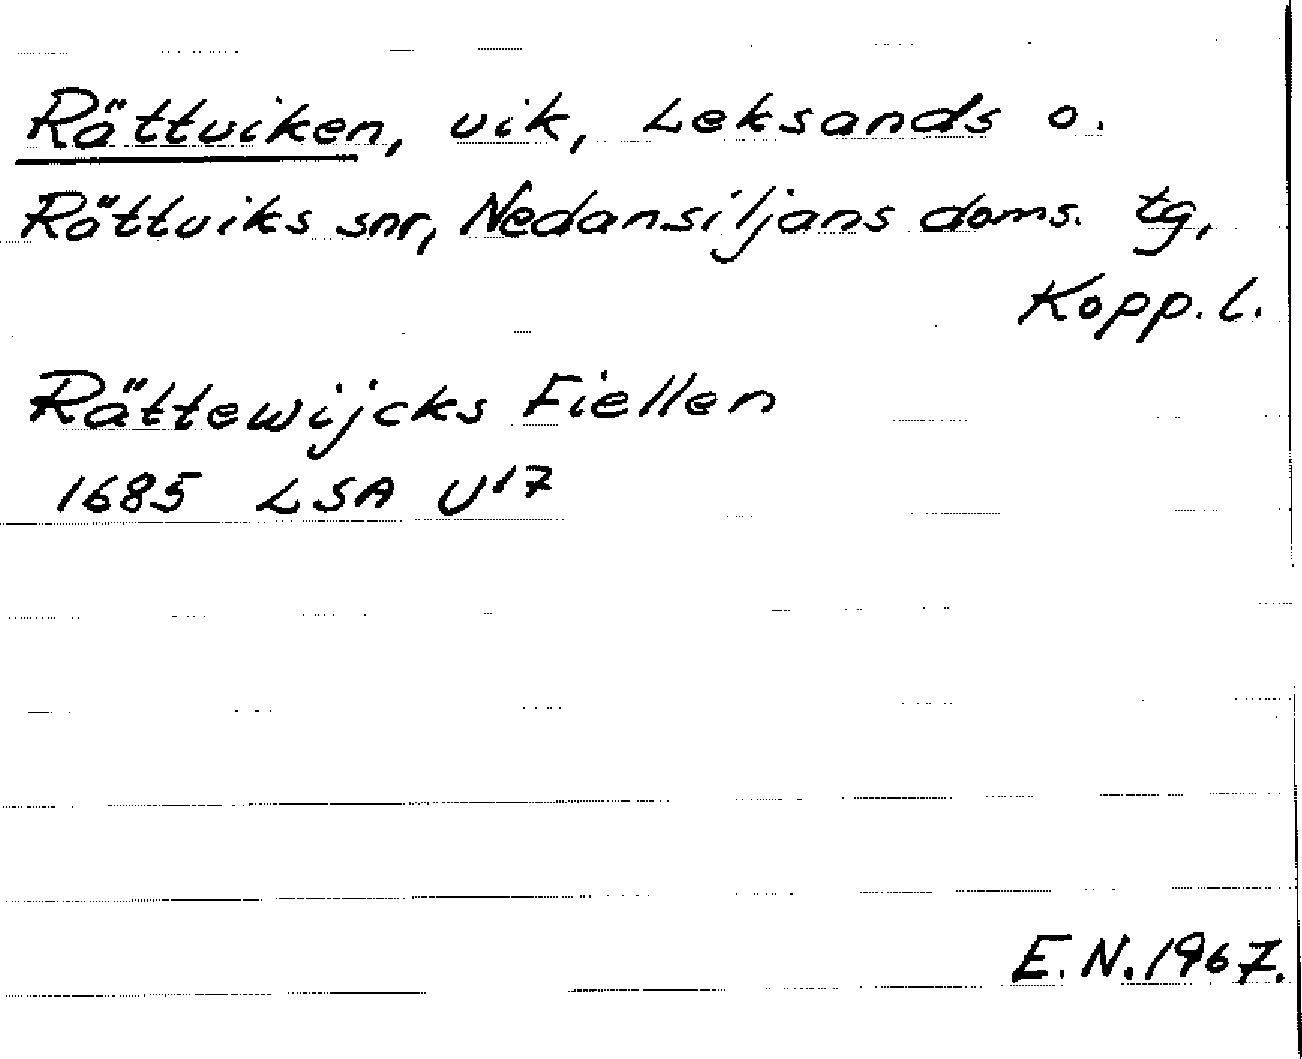 Rättviken, vik, Leksands o.
Rättviks snr, Nedansiljans doms. tg,
Kopp. l.
Rättewijcks Fiellen
1685 LSA U17
E. N. 1967.